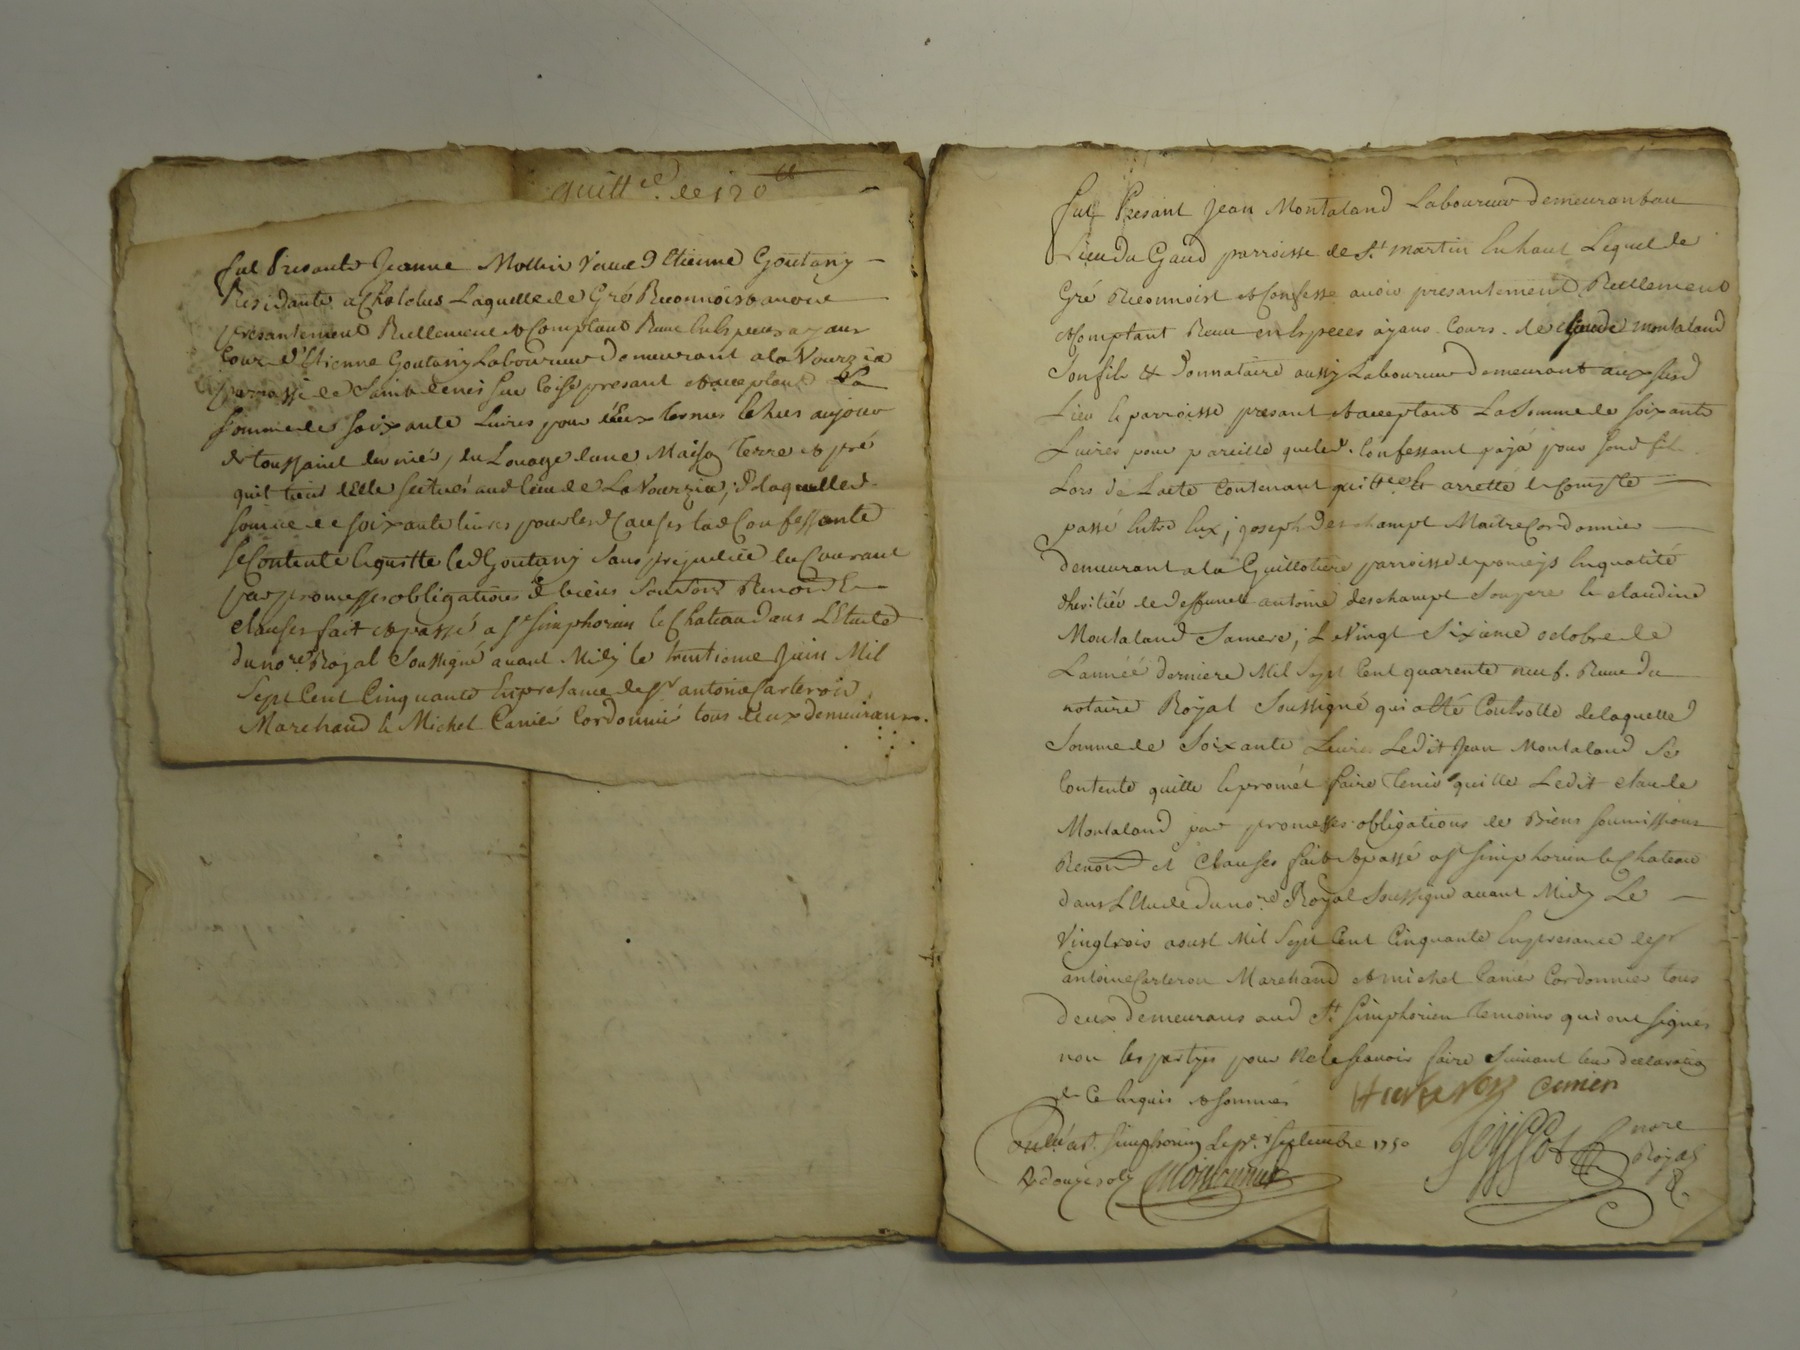 quitt.ce de 120 tt
fut presante Jeanne Mollin veuve d'Etienne Goutany
Residante a Laquelle de Gré Reconnoist avoir
presantement Reellement & Comptant Receu en Especes ayans
Cour d'Etienne Goutany Laboureur demeurant a la Vourzia
parroisse de Saint denis sur Coise presant & acceptant La
somme de soixante Livres pour deux termes Echus au jour
de toussaint dernier, du Louage d'une Maison terre & pré
quil tient d'Elle scitués aud lieu de La Vourzia, de laquelle d.
somme de soixante livres pour les d Causes lad Confessante
se Contente & quitte led Goutany sans prejudice du Courant
par promesses obligations de biens Renon &
clauses fait & passé a St simphorien le Chateau dans L'Etude
du no.re Royal soussigné avant Midy le trentieme Juin Mil
sept Cent Cinquante En presance de Sr antoine Carteron
Marchand & Michel Canier Cordonnier tous deux demeurans
fut Presant Jean Montaland Laboureur demeurant au
Lieu du Gaud parroisse de St martin En haut Lequel de
Gré Reconnoist & Confesse avoir presantement Reellement
& Comptant Receu en Especes ayans Cours de Claude montaland
son fils & Donnataire aussy Laboureur demeurant aux susd
Lieu & parroisse presant & acceptant La somme de soixante
Livres pour pareille que led. Confessant a payé pour sond fils
Lors de L'acte Contenant quitt.ce & arretté de Compte
passé Entre Eux, joseph deschampt Maitre Cordonnier
demeurant a la Guillotiere parroisse En qualité
d'heritier de deffunct antoine deschampt son pere & claudine
Montaland sa mere, Le Vingt sixieme octobre de
L'année derniere Mil sept Cent quarente neuf. Receu du
notaire Royal soussigné qui a Eté Controllé de laquelle
somme de soixante Livres Ledit Jean Montaland se
Contente quitte & promet faire tenir quitte Ledit claude
Montaland par promesses obligations de Biens soumissions
Renon et Clauses fait & passé a St simphorien le Chateau
dans L'Etude du no.re Royal soussigné avant Midy Le
Vingt trois aoust Mil sept Cent Cinquante En presance de Sr
antoine Carteron Marchand & michel Canier Cordonnier tous
deux demeurans aud St simphorien temoins qui ont signés
non les partyes pour ne le scavoir faire suivant leur declaration
de Ce Enquis & sommés
Canier
a St simphorien Le pr. septembre 1750
R douze sols
no.re
Royal